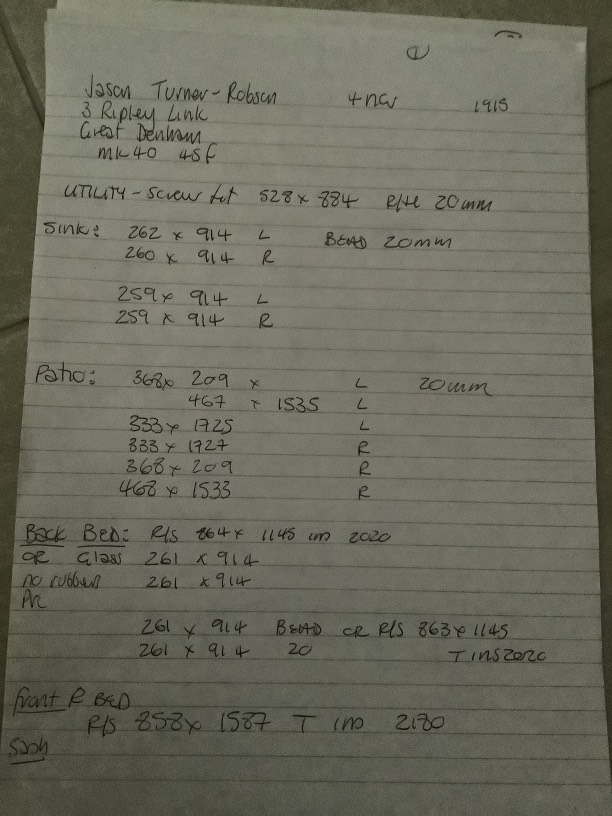 1
Jason Turner-Robson 1915
3 Ripley Link
Great Denham
MK40 4SF
UTILITY - Screw fit 528 x 884 R/H 20mm
Sink: 262 x 914 L BEAD 20mm
260 x 914 R
259 x 914 L
259 x 914 R
Patio: 368 x 209 x L 20mm
467 x 1535 L
333 x 1725 L
333 x 1727 R
368 x 209 R
468 x 1533 R
Back Bed: R/S 864 x 1145 ins 2020
OR Glass 261 x 914
no rubbers 261 x 914
261 x 914 BEAD OR R/S 863 x 1145
261 x 914 20 T ins 2020
front R BED
R/S 858 x 1587 T ins 2180
Sash